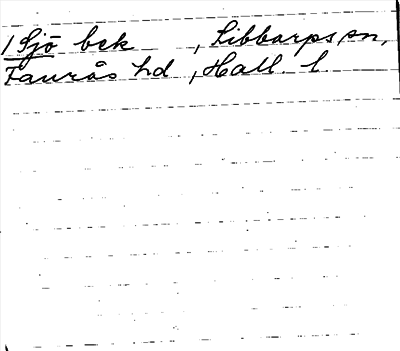 /Sjö bek , Sibbarps sn,
Faurås hd , Hall. l.